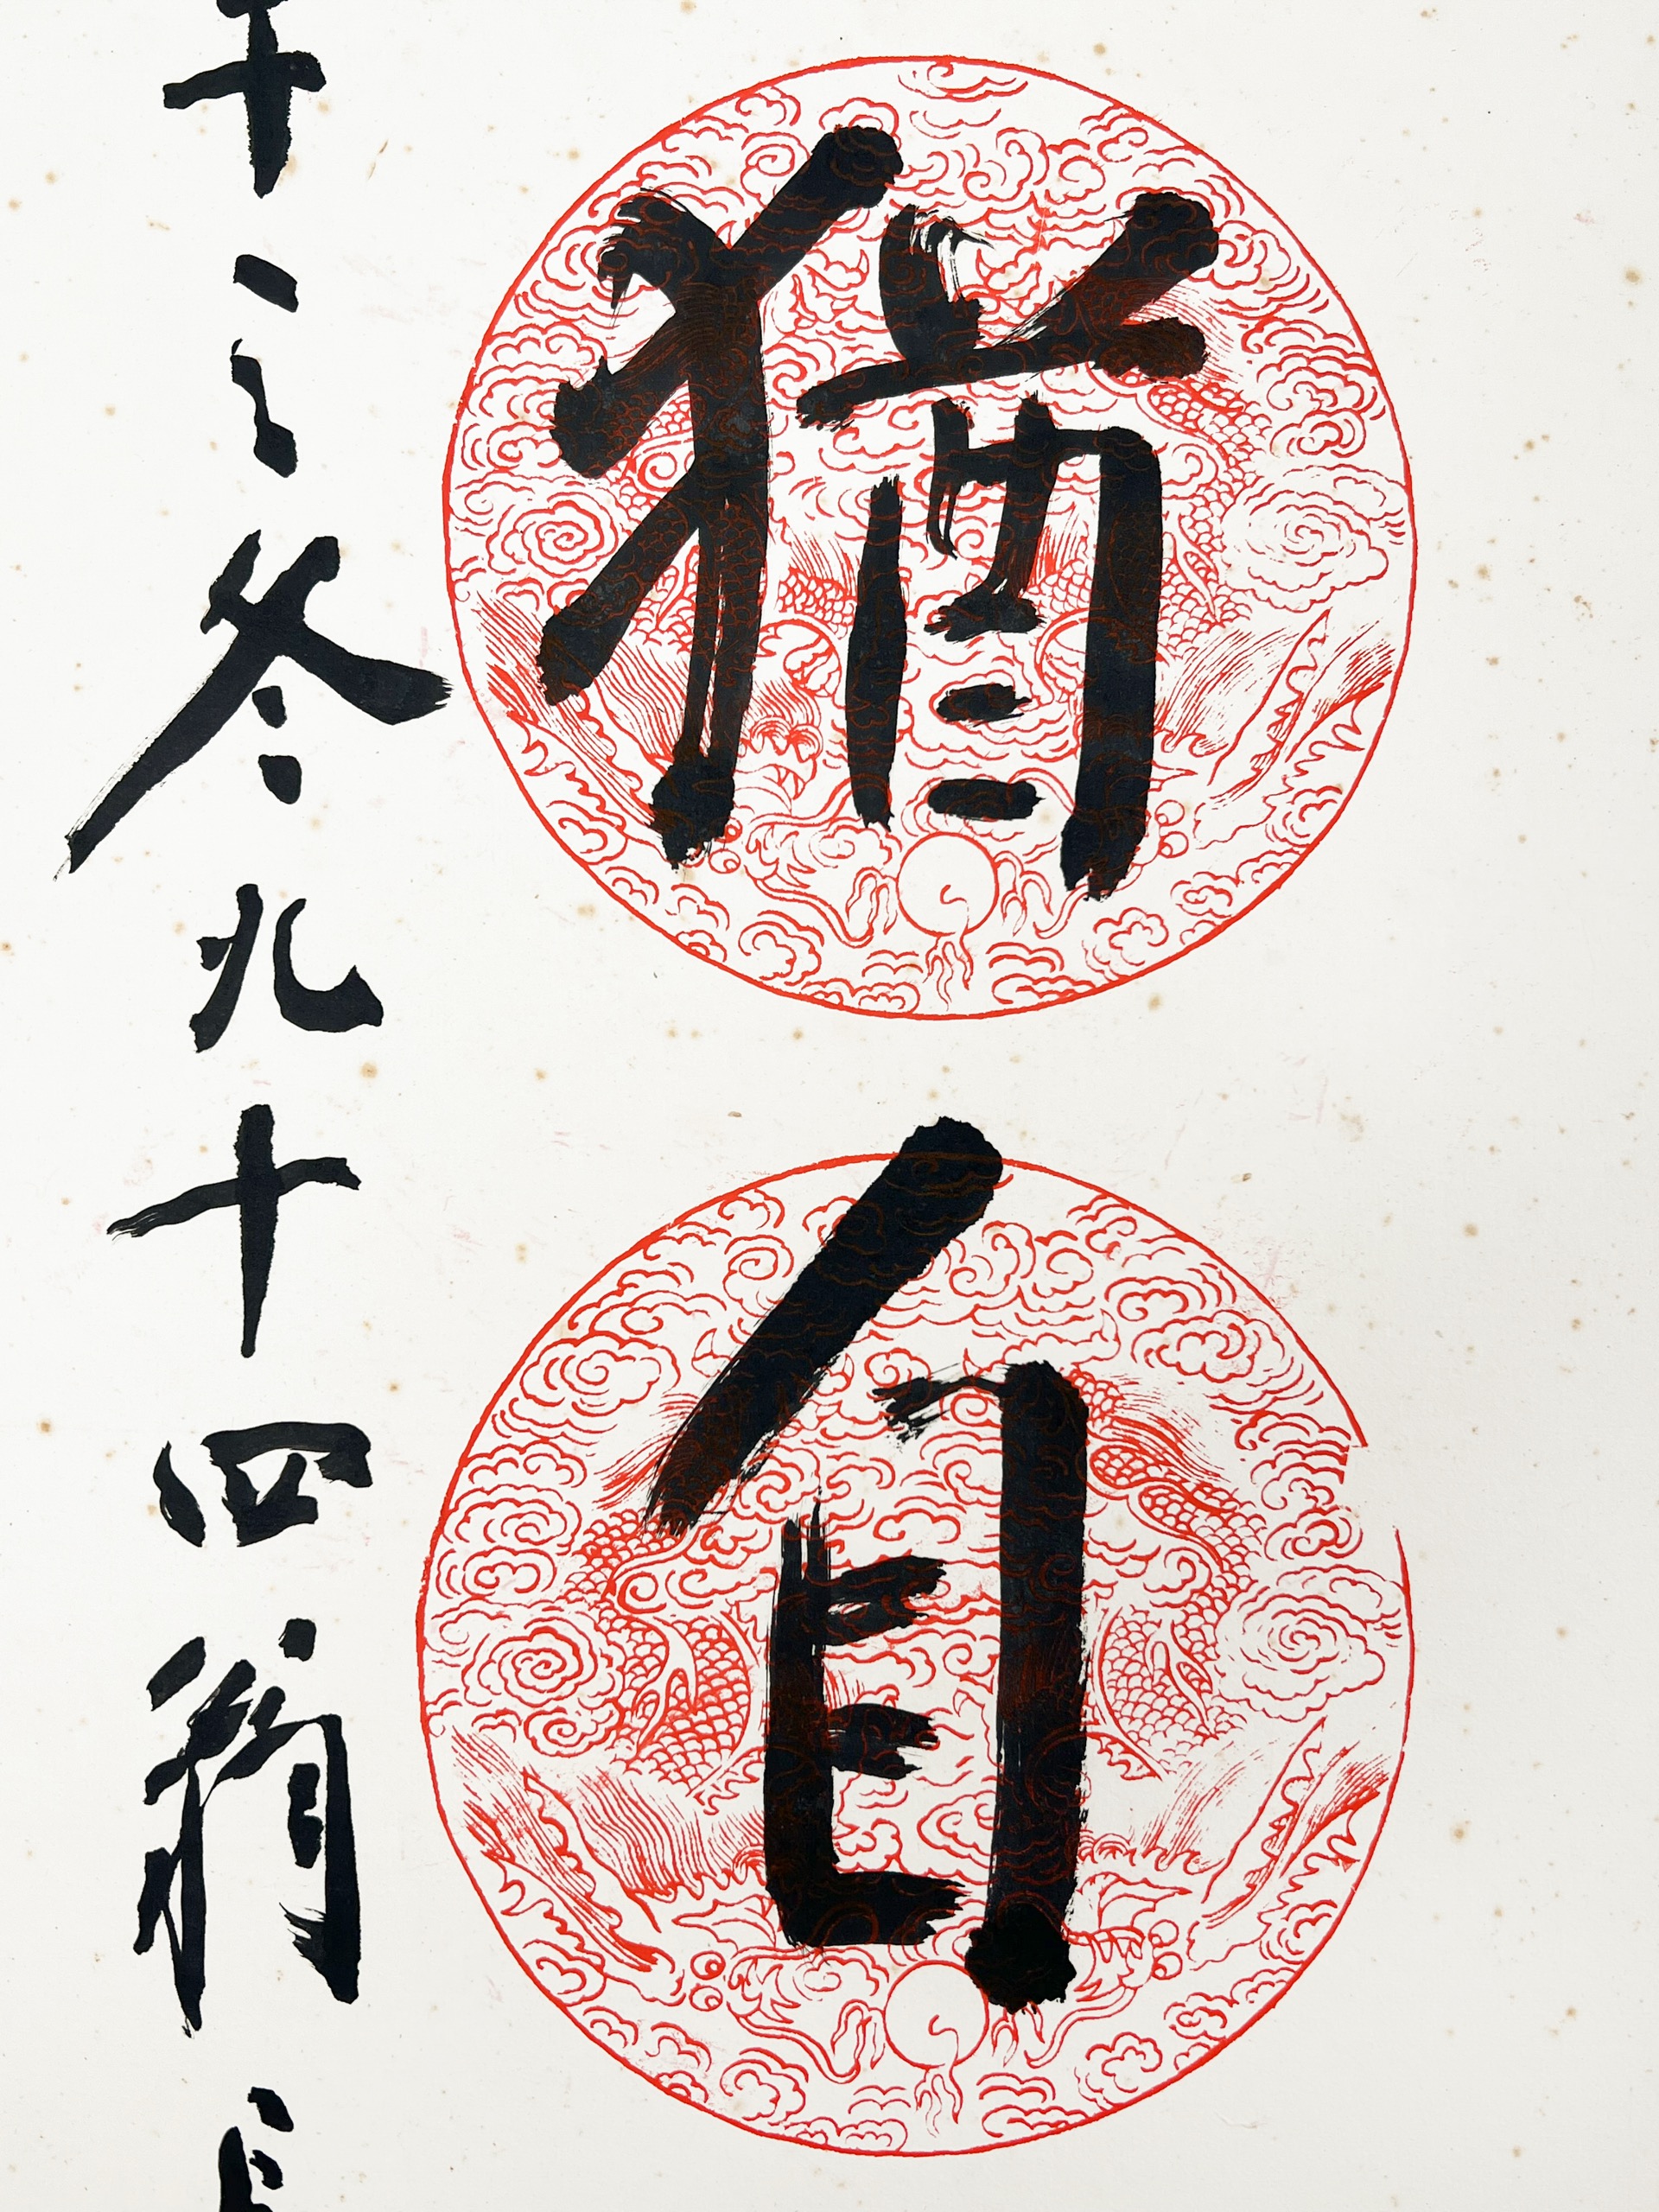 猶自
之冬九十四翁